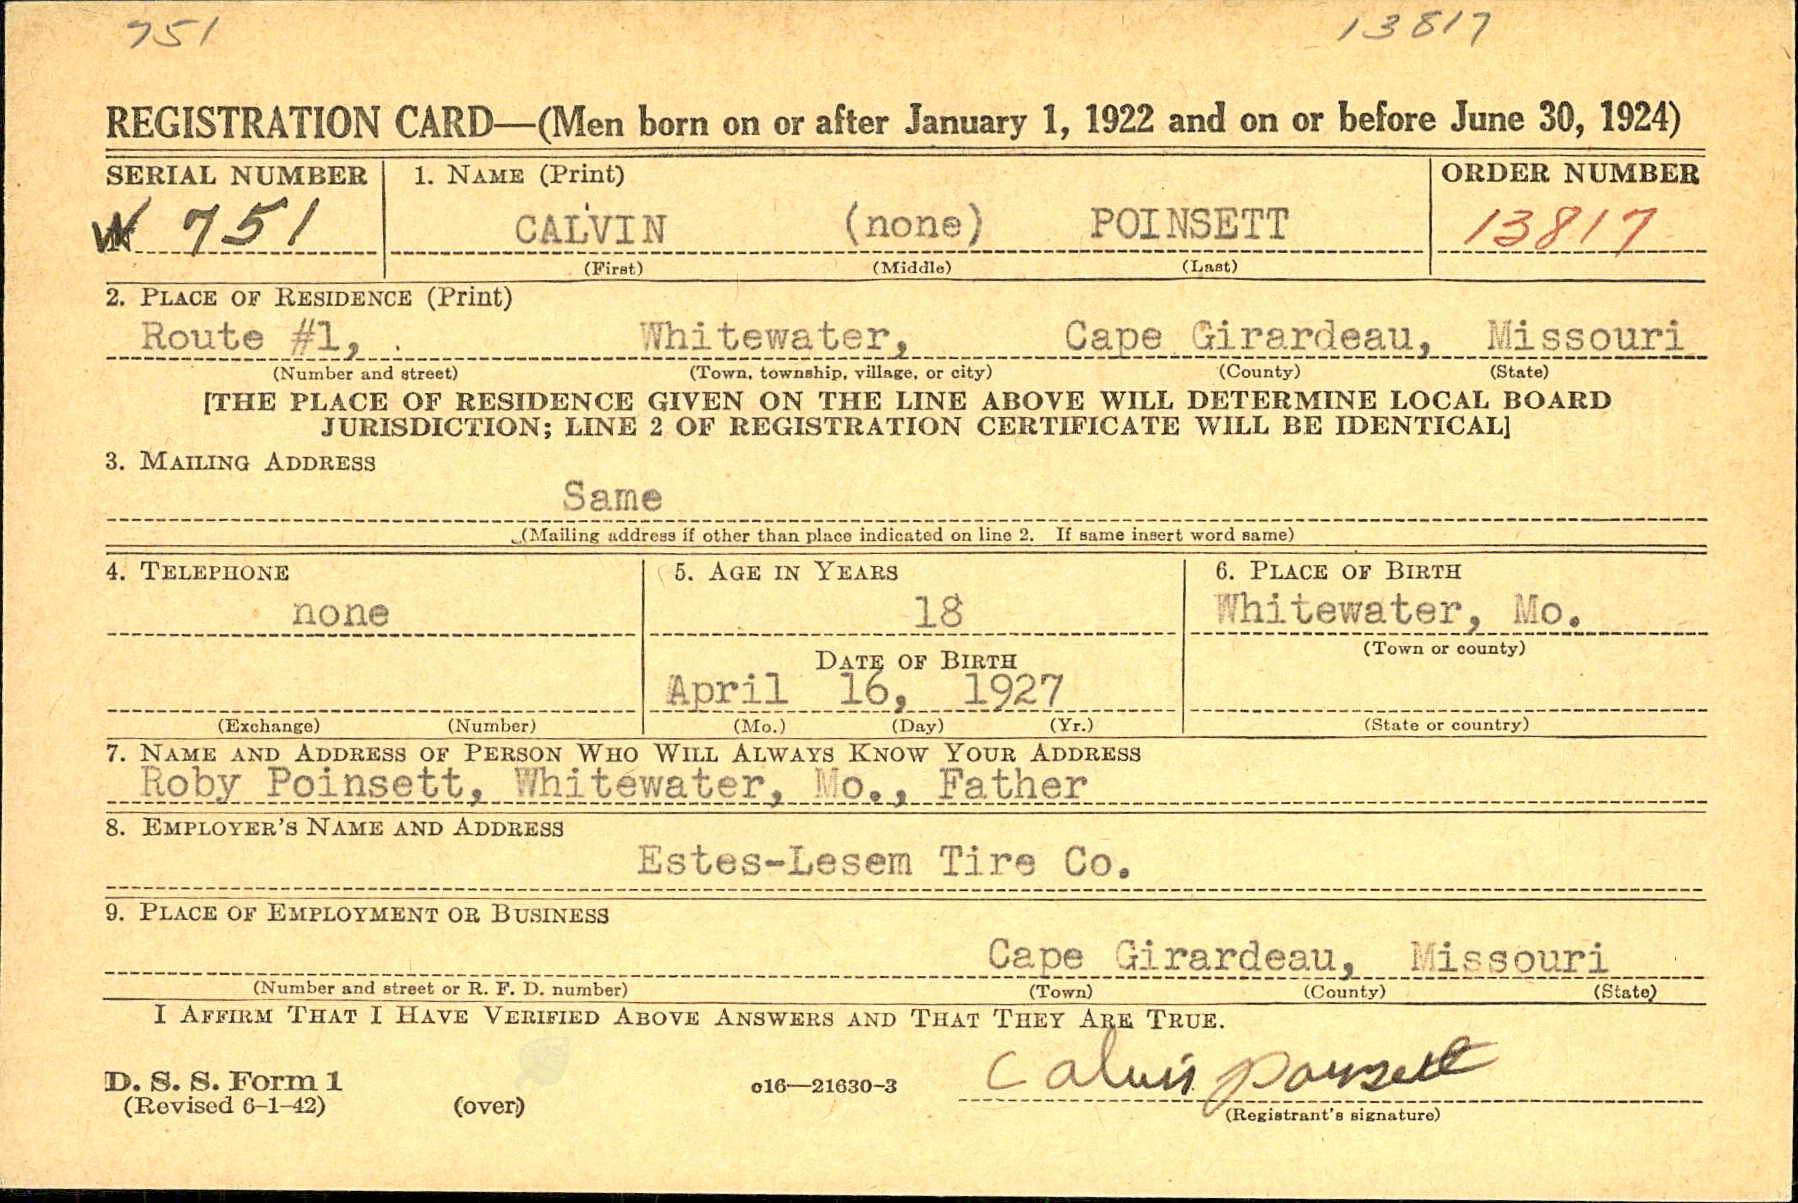 751 13817
REGISTRATION CARD—(Men born on or after January 1, 1922 and on or before June 30, 1924)
SERIAL NUMBER 1. NAME (Print) ORDER NUMBER
W 751 CALVIN (none) POINSETT 13817
(First) (Middle) (Last)
2. PLACE OF RESIDENCE (Print)
Route #1, Whitewater, Cape Girardeau, Missouri
(Number and street) (Town, township, village, or city) (County) (State)
[THE PLACE OF RESIDENCE GIVEN ON THE LINE ABOVE WILL DETERMINE LOCAL BOARD
JURISDICTION; LINE 2 OF REGISTRATION CERTIFICATE WILL BE IDENTICAL]
3. MAILING ADDRESS
Same
(Mailing address if other than place indicated on line 2. If same insert word same)
4. TELEPHONE 5. AGE IN YEARS 6. PLACE OF BIRTH
none 18 Whitewater, Mo.
(Town or county)
DATE OF BIRTH
April 16, 1927
(Exchange) (Number) (Mo.) (Day) (Yr.) (State or country)
7. NAME AND ADDRESS OF PERSON WHO WILL ALWAYS KNOW YOUR ADDRESS
Roby Poinsett, Whitewater, Mo., Father
8. EMPLOYER'S NAME AND ADDRESS
Estes-Lesem Tire Co.
9. PLACE OF EMPLOYMENT OR BUSINESS
Cape Girardeau, Missouri
(Number and street or R. F. D. number) (Town) (County) (State)
I AFFIRM THAT I HAVE VERIFIED ABOVE ANSWERS AND THAT THEY ARE TRUE.
D. S. S. Form 1
(Revised 6-1-42) (over) c16—21630-3 Calvin Poinsett
(Registrant's signature)